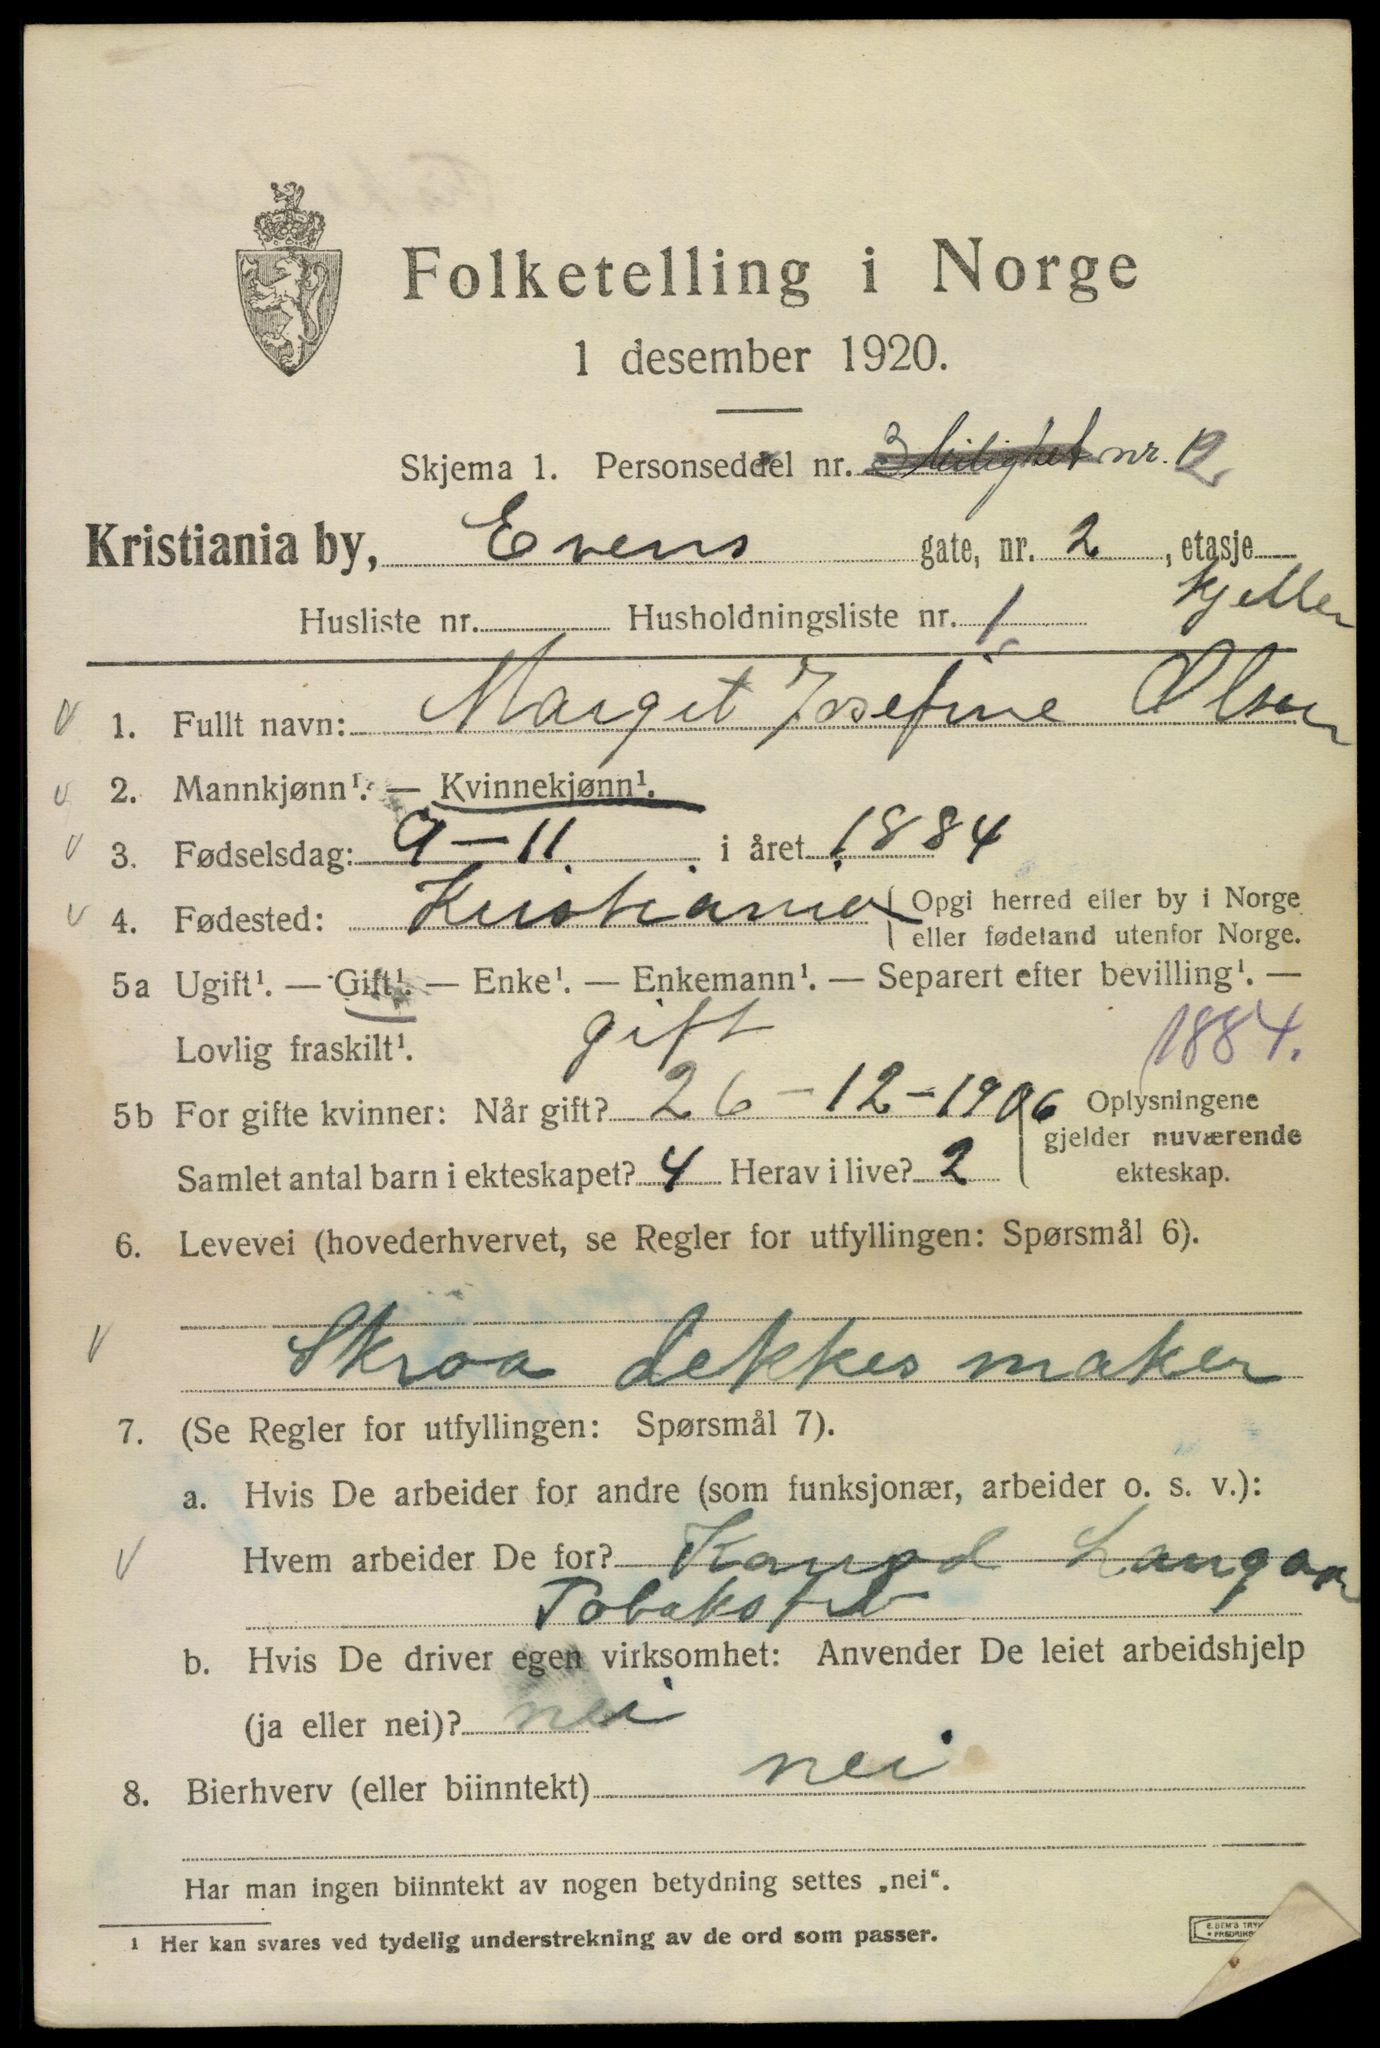 Folketelling i Norge
1 desember 1920.
Skjema 1. Personseddel nr. 3 leilighet nr. 12
Kristiania by, Evens gate, nr. 2, etasje
kjeller
Husliste nr. Husholdningsliste nr. 1
1. Fullt navn: Margit Josefine Olsen
2. Mannkjønn¹. — Kvinnekjønn¹.
3. Fødselsdag: 9 – 11 i året 1884
4. Fødested: Kristiania Opgi herred eller by i Norge
eller fødeland utenfor Norge.
5a Ugift¹. — Gift¹. — Enke¹. — Enkemann¹. — Separert efter bevilling¹. —
Lovlig fraskilt¹. gift 1884.
5b For gifte kvinner: Når gift? 26 – 12 – 1906 Oplysningene
gjelder nuværende
Samlet antal barn i ekteskapet? 4 Herav i live? 2 ekteskap.
6. Levevei (hovederhvervet, se Regler for utfyllingen: Spørsmål 6).
Skraa dekkes maker
7. (Se Regler for utfyllingen: Spørsmål 7).
a. Hvis De arbeider for andre (som funksjonær, arbeider o. s. v.):
Hvem arbeider De for? Langaar
b. Hvis De driver egen virksomhet: Anvender De leiet arbeidshjelp
(ja eller nei)? nei
8. Bierhverv (eller biinntekt) nei
Har man ingen biinntekt av nogen betydning settes „nei“.
¹ Her kan svares ved tydelig understrekning av de ord som passer.